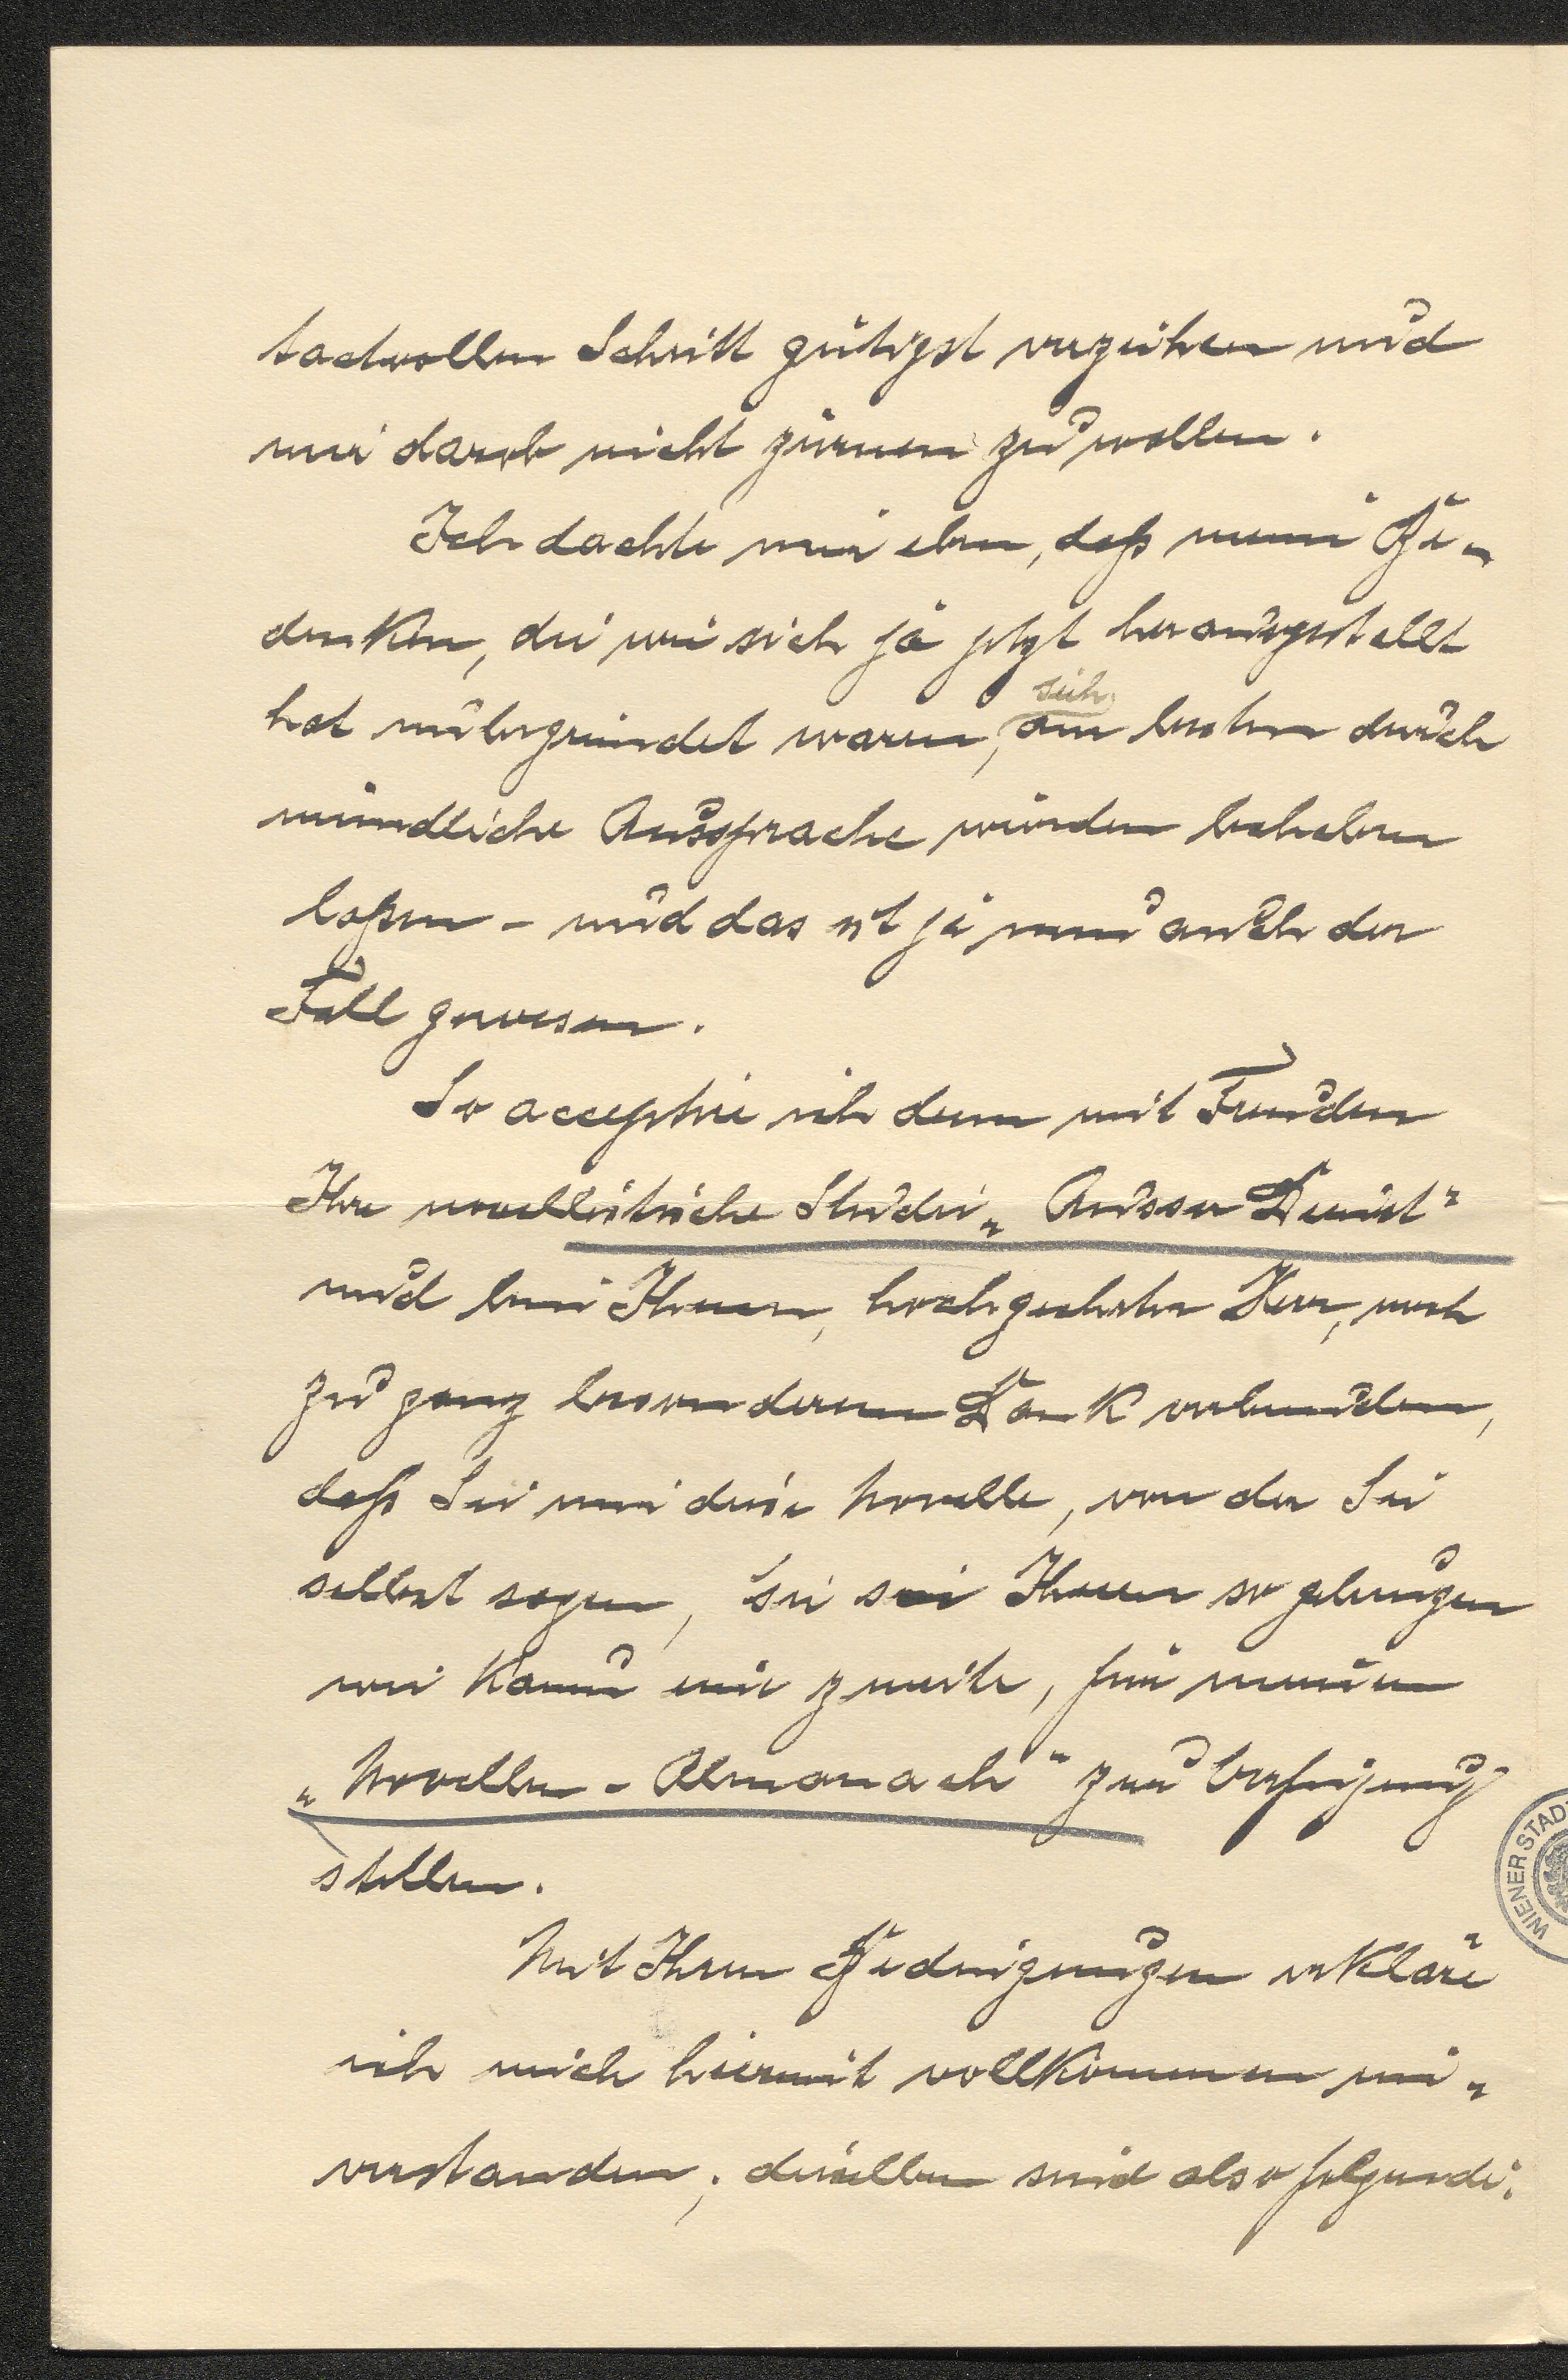 tactvollen Schritt gütigst verzeihen und
mir darob nicht zürnen zu wollen.
Ich dachte mir eben, daß meine Be-
denken, die wie sich ja jetzt herausgestellt
hat unbegründet waren, sich am besten durch
mündliche Aussprache würden beheben
laßen – und das ist ja nun auch der
Fall gewesen.
So acceptire ich denn mit Freuden
Ihre novellistische Studie „Ausser Dienst“
und bin Ihnen, hochgeehrter Herr, noch
zu ganz besonderem Dank verbunden,
daß Sie mir diese Novelle, von der Sie
selbst sagen, sie sei Ihnen so gelungen
wie kaum eine zweite, für meinen
„Novellen-Almanach“ zur Verfügung
stellen.
Mit Ihren Bedingungen erkläre
ich mich hiermit vollkommen ein-
verstanden; dieselben sind also folgende:
WIENER STADT